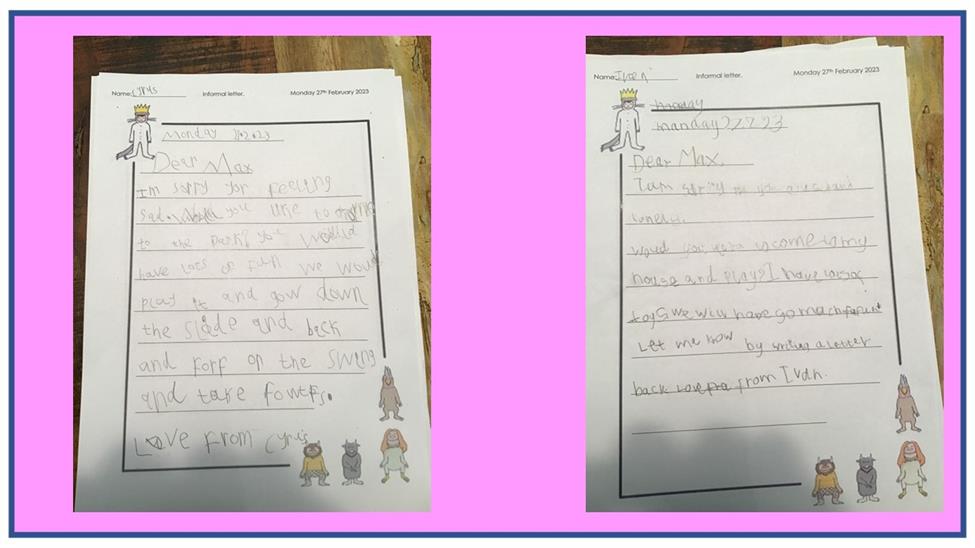 Name: Cyrus Informal letter. Monday 27th February 2023
Monday
Dear Max
I'm sorry your feeling
sad. you like to
to the park? you would
have lots of fun we would
play it and gow down
the slide and back
and forf on the swing
and take
Love from Cyrus
Name: Informal letter. Monday 27th February 2023
manday 27 2 23
Dear Max.
I am sorry you
woud you come to my
house and play? I have
toys we will have so mach
Let me now by writing a letter
back from Ivan.